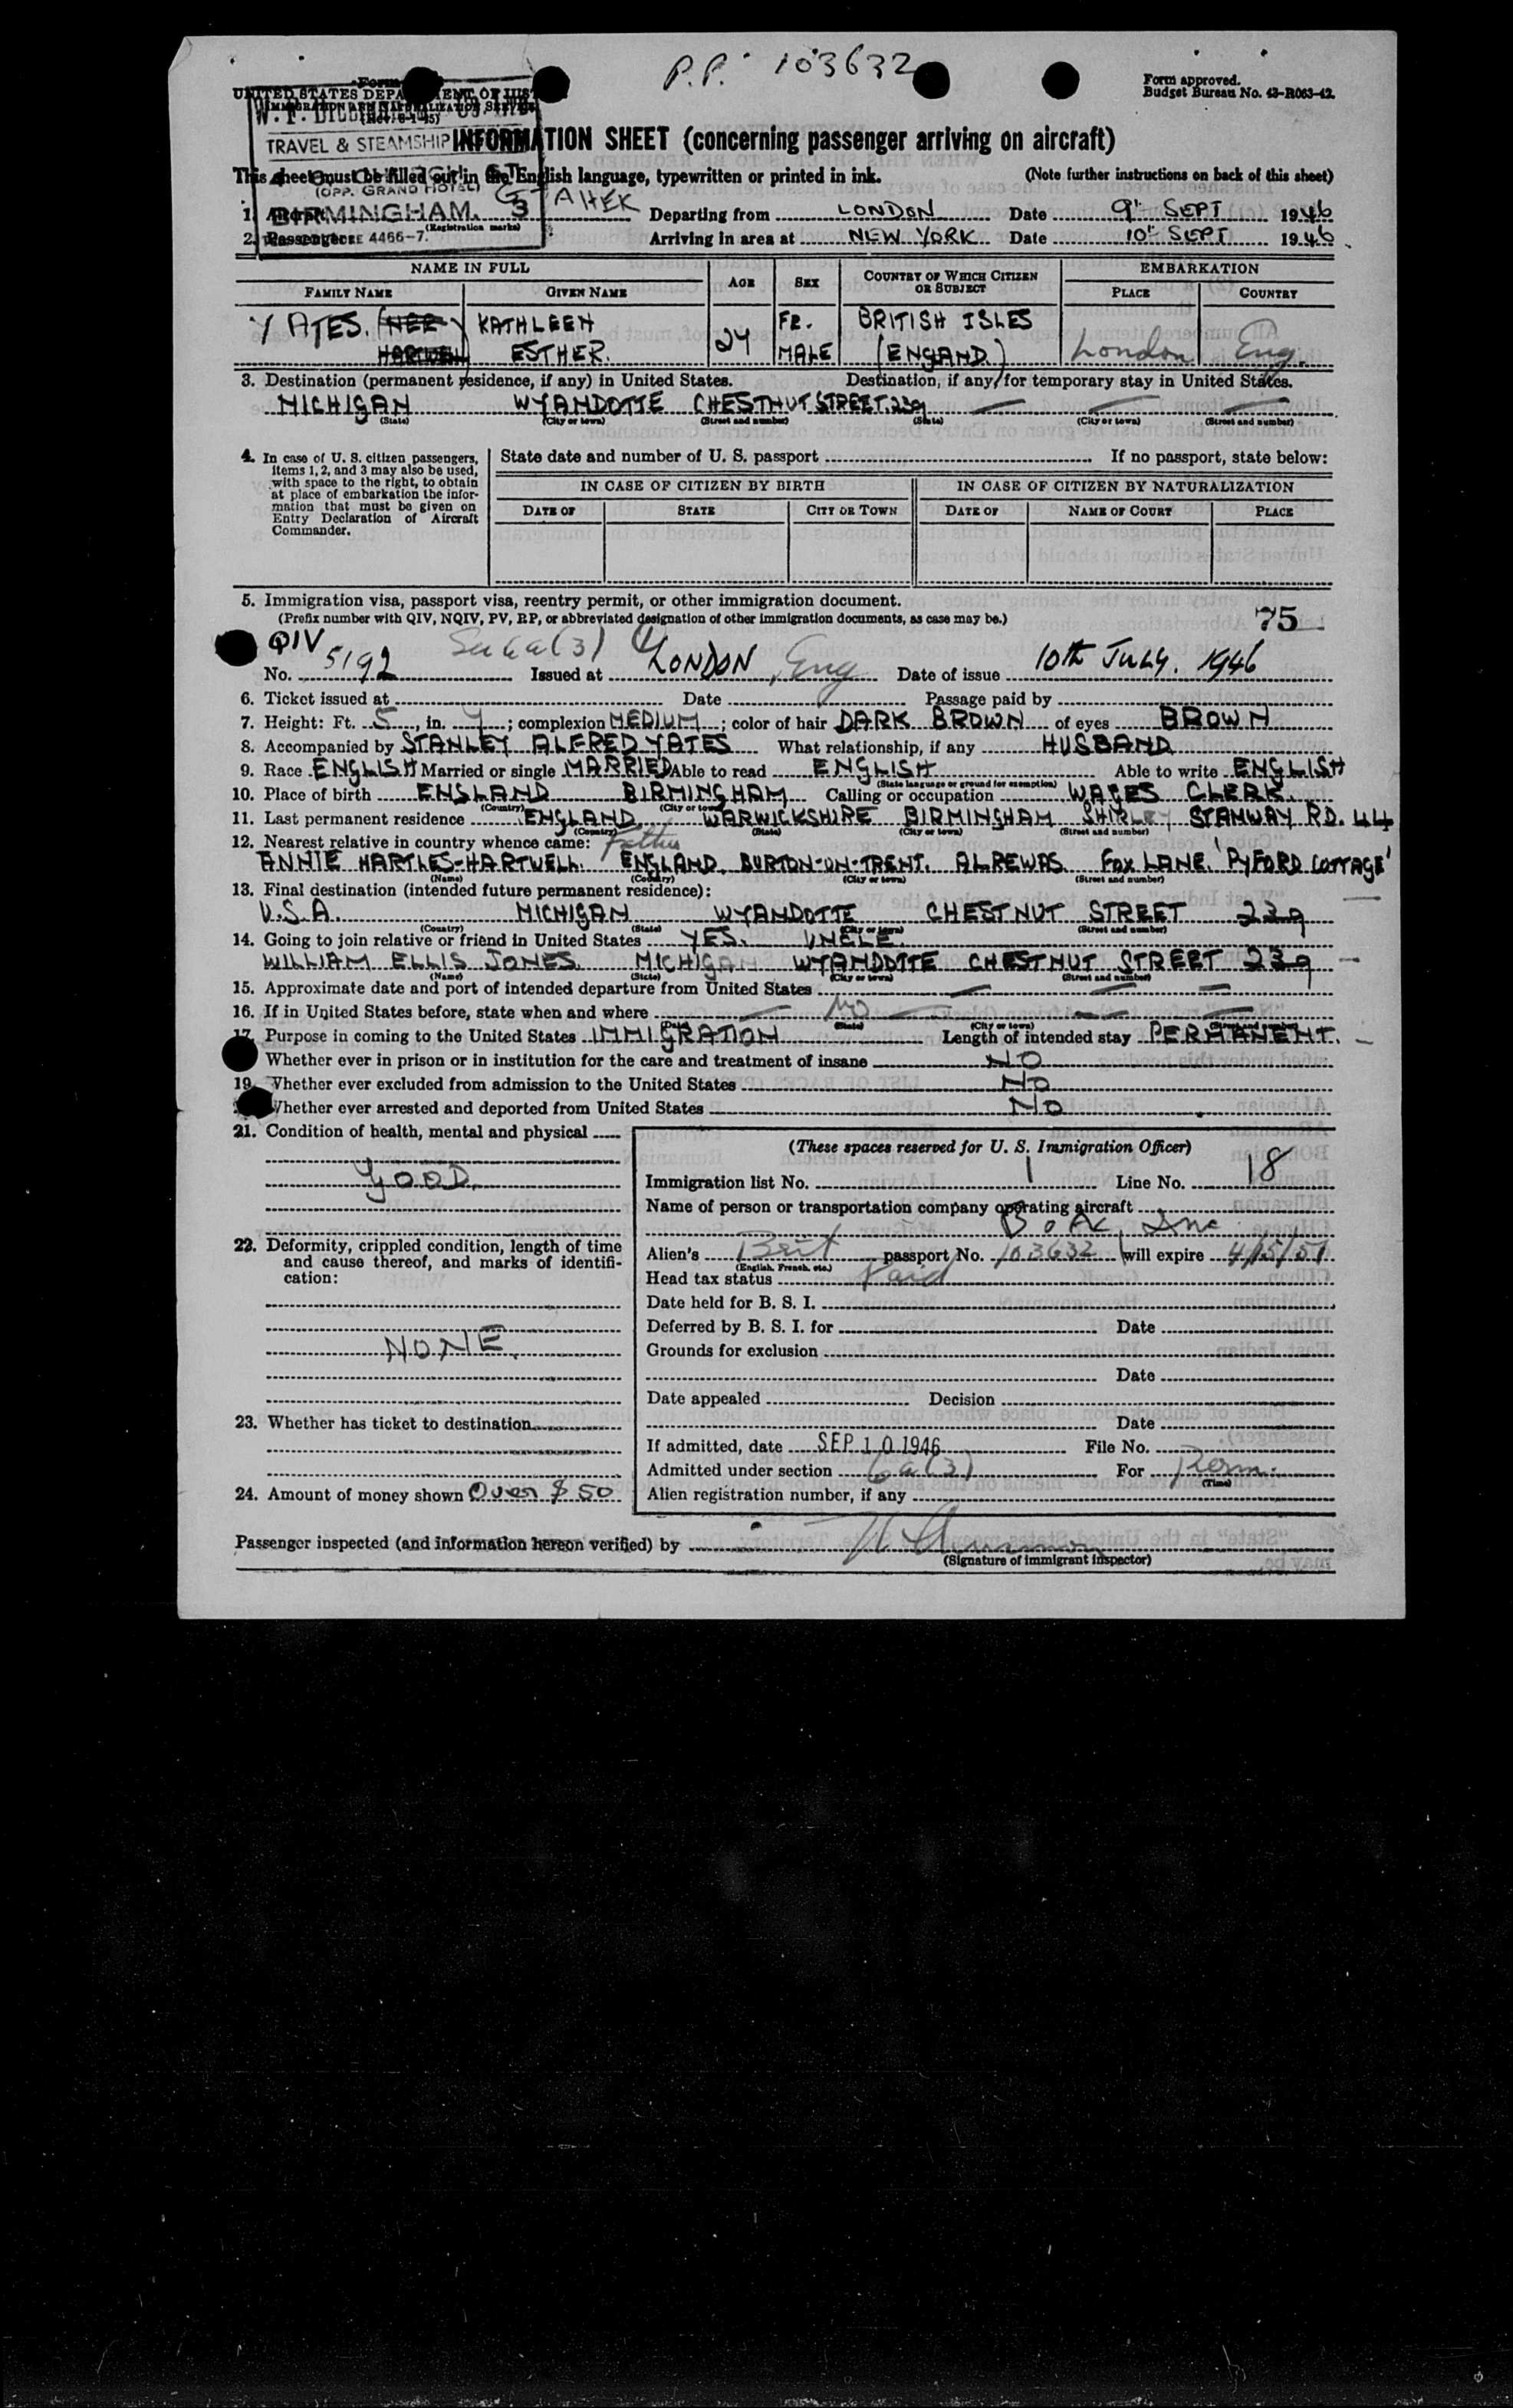 P.P. 103632
Form approved.
Budget Bureau No. 43-R063-42.
UNITED STATES DEPARTMENT OF JUSTICE
IMMIGRATION AND NATURALIZATION SERVICE
TRAVEL & STEAMSHIP
INFORMATION SHEET (concerning passenger arriving on aircraft)
This sheet must be filled out in the English language, typewritten or printed in ink. (Note further instructions on back of this sheet)
(OPP. GRAND HOTEL)
BIRMINGHAM. 3
4466-7.
1. Aircraft G-AHEK Departing from LONDON Date 9th SEPT 1946
(Registration marks)
2. Passenger: Arriving in area at NEW YORK Date 10th SEPT 1946
NAME IN FULL AGE SEX COUNTRY OF WHICH CITIZEN OR SUBJECT EMBARKATION
FAMILY NAME GIVEN NAME PLACE COUNTRY
YATES. (NEE KATHLEEN 24 FE. BRITISH ISLES
HARTWELL) ESTHER. MALE (ENGAND.) London Eng.
3. Destination (permanent residence, if any) in United States. Destination, if any, for temporary stay in United States.
MICHIGAN WYANDOTTE CHESTNUT STREET. 239 — — —
(State) (City or town) (Street and number) (State) (City or town) (Street and number)
4. In case of U. S. citizen passengers, items 1, 2, and 3 may also be used, with space to the right, to obtain at place of embarkation the information that must be given on Entry Declaration of Aircraft Commander.
State date and number of U. S. passport If no passport, state below:
IN CASE OF CITIZEN BY BIRTH IN CASE OF CITIZEN BY NATURALIZATION
DATE OF STATE CITY OR TOWN DATE OF NAME OF COURT PLACE
5. Immigration visa, passport visa, reentry permit, or other immigration document.
(Prefix number with QIV, NQIV, PV, RP, or abbreviated designation of other immigration documents, as case may be.) 75
QIV 6a(3)
No. 5192 Issued at LONDON, Eng Date of issue 10th JULY. 1946
6. Ticket issued at Date Passage paid by
7. Height: Ft. 5, in. 4; complexion MEDIUM; color of hair DARK BROWN of eyes BROWN
8. Accompanied by STANLEY ALFRED YATES What relationship, if any HUSBAND
9. Race ENGLISH Married or single MARRIED Able to read ENGLISH Able to write ENGLISH
(State language or ground for exemption)
10. Place of birth ENGLAND BIRMINGHAM Calling or occupation WAGES CLERK.
(Country) (City or town)
11. Last permanent residence ENGLAND WARWICKSHIRE BIRMINGHAM SHIRLEY STANWAY RD. 44
(Country) (State) (City or town) (Street and number)
12. Nearest relative in country whence came: Father
ANNIE HARTLES-HARTWELL. ENGLAND. BURTON-ON-TRENT. ALREWAS FOX LANE. 'PYFORD COTTAGE'
(Name) (Country) (City or town) (Street and number)
13. Final destination (intended future permanent residence):
U.S.A. MICHIGAN WYANDOTTE CHESTNUT STREET 239
(Country) (State) (City or town) (Street and number)
14. Going to join relative or friend in United States YES. UNCLE.
WILLIAM ELLIS JONES. MICHIGAN WYANDOTTE CHESTNUT STREET 239
(Name) (State) (City or town) (Street and number)
15. Approximate date and port of intended departure from United States — — —
16. If in United States before, state when and where — NO — — —
(Date) (State) (City or town) (Street and number)
17. Purpose in coming to the United States IMMIGRATION Length of intended stay PERMANENT.
Whether ever in prison or in institution for the care and treatment of insane NO
19. Whether ever excluded from admission to the United States NO
Whether ever arrested and deported from United States NO
21. Condition of health, mental and physical
GOOD.
22. Deformity, crippled condition, length of time and cause thereof, and marks of identification:
NONE.
23. Whether has ticket to destination
24. Amount of money shown Over $50
(These spaces reserved for U. S. Immigration Officer)
Immigration list No. 1 Line No. 18
Name of person or transportation company operating aircraft
BOAC Inc
Alien's Brit passport No. 103632 will expire 4/15/51
(English, French, etc.)
Head tax status Paid
Date held for B. S. I.
Deferred by B. S. I. for Date
Grounds for exclusion
Date
Date appealed Decision
Date
If admitted, date SEP 10 1946 File No.
Admitted under section 6a(3) For Perm.
(Time)
Alien registration number, if any
Passenger inspected (and information hereon verified) by
(Signature of immigrant inspector)